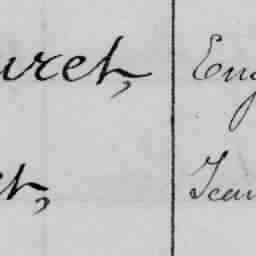 uret, Eug
et, Jean